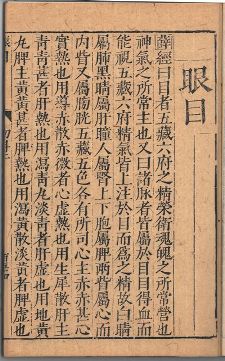 眼目
經曰目者五藏六府之精榮衛魂魄之所常營也
神氣之所常主也又曰諸脉者皆屬於目目得血而
能視五藏六府精氣皆上注於目而為之精故白睛
屬肺黑睛屬肝瞳人屬腎上下胞屬脾兩眥屬心而
内眥又屬膀胱五藏五色各有所司心主赤赤甚心
實熱也用導赤散赤微者心虛熱也用生犀散肝主
青青甚者肝熱也用瀉青丸淡青者肝虛也用地黃
丸脾主黃黃甚者脾熱也用瀉黃散淡黃者脾虛也